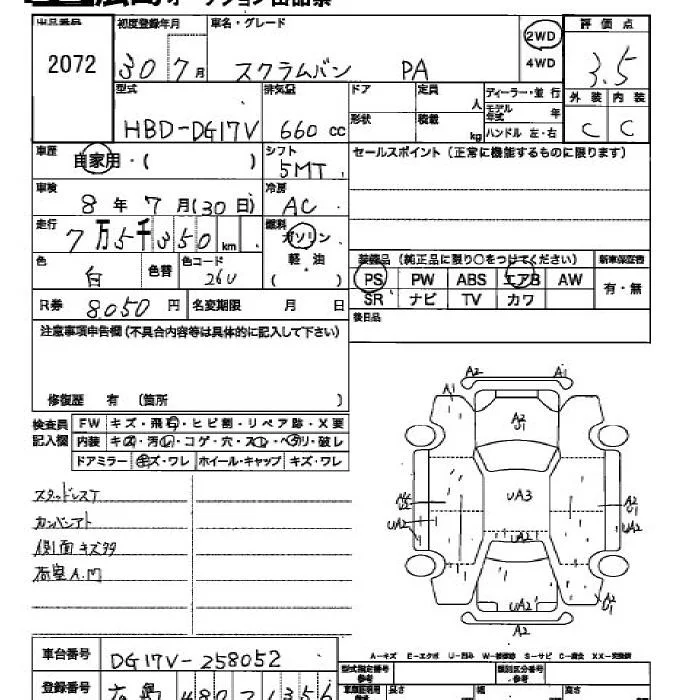 広島オークション出品票
出品番号 初度登録年月 車名・グレード 評価点
2072 30 7月 スクラムバン PA 2WD 4WD 3.5
型式 排気量 ドア 定員 人 ディーラー・並行 外装 内装
HBD-DG17V 660 cc 形状 積載 kg モデル年式 年 ハンドル 左・右 C C
車歴 自家用・( ) シフト 5MT セールスポイント(正常に機能するものに限ります)
車検 8年7月(30日) 冷房 AC
走行 7万5千350km 燃料 ガソリン 軽油 ( )
色 白 色替 色コード 26U
装備品(純正品に限り○をつけてください) 新車保証書
PS PW ABS エアB AW 有・無
SR ナビ TV カワ
R券 8050円 名変期限 月 日 後日品
注意事項申告欄(不具合内容等は具体的に記入して下さい)
修復歴 有 (箇所 )
検査員記入欄 FW キズ・飛石・ヒビ割・リペア跡・X要
内装 キズ・汚レ・コゲ・穴・スレ・ヘタリ・破レ
ドアミラー キズ・ワレ ホイール・キャップ キズ・ワレ
スタッドレスT
側面キズタタ
荷室A.M
A2 A1
A1
A2 U1
UA3
A2 U1
UA2 UA2
UA2
UA2
A2 U1
A2
A-キズ E-エクボ U-凹み W-補修跡 S-サビ C-腐食 XX-交換済
車台番号 DG17V-258052
型式指定番号 参考 類別区分番号 参考
登録番号 480 車庫証明用 長さ 幅 高さ